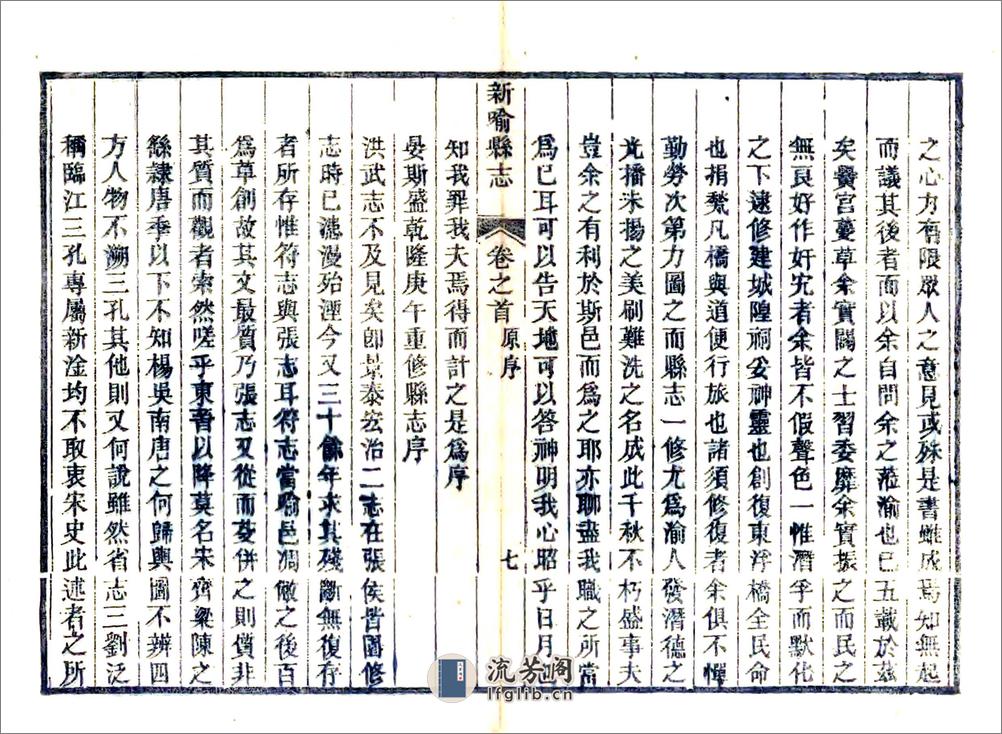 之心力有限眾人之意見或殊是書雖成焉知無起
而議其後者而以余自問余之蒞渝也已五載於茲
矣黌宮蔓草余實闢之士習委靡余實振之而民之
無良好作奸宄者余皆不假聲色一惟潛孚而默化
之下遠修建城隍祠妥神靈也創復東浮橋全民命
也捐凳凡橋與道便行旅也諸須修復者余俱不憚
勤勞次第力圖之而縣志一修尤為渝人發潛德之
光播洙揚之美刷難洗之名成此千秋不朽盛事夫
豈余之有利於斯邑而為之耶亦聊盡我職之所當
為已耳可以告天地可以答神明我心昭乎日月而
新喻縣志
卷之首
原序
七
知我罪我夫焉得而計之是為序
晏斯盛乾隆庚午重修縣志序
洪武志不及見矣卽景泰宏治二志在張侯皆圖修
志時已漶漫殆湮今又三十餘年求其殘斷無復存
者所存惟符志與張志耳符志當喻邑凋敝之後百
為草創故其文最質乃張志又從而芟併之則質非
其質而觀者索然嗟乎東晉以降莫名宋齊梁陳之
繇隸唐季以下不知楊吳南唐之何歸輿圖不辨四
方人物不溯三孔其他則又何說雖然省志三劉泛
稱臨江三孔專屬新淦均不取衷宋史此述者之所
流芳阁
lfglib.cn